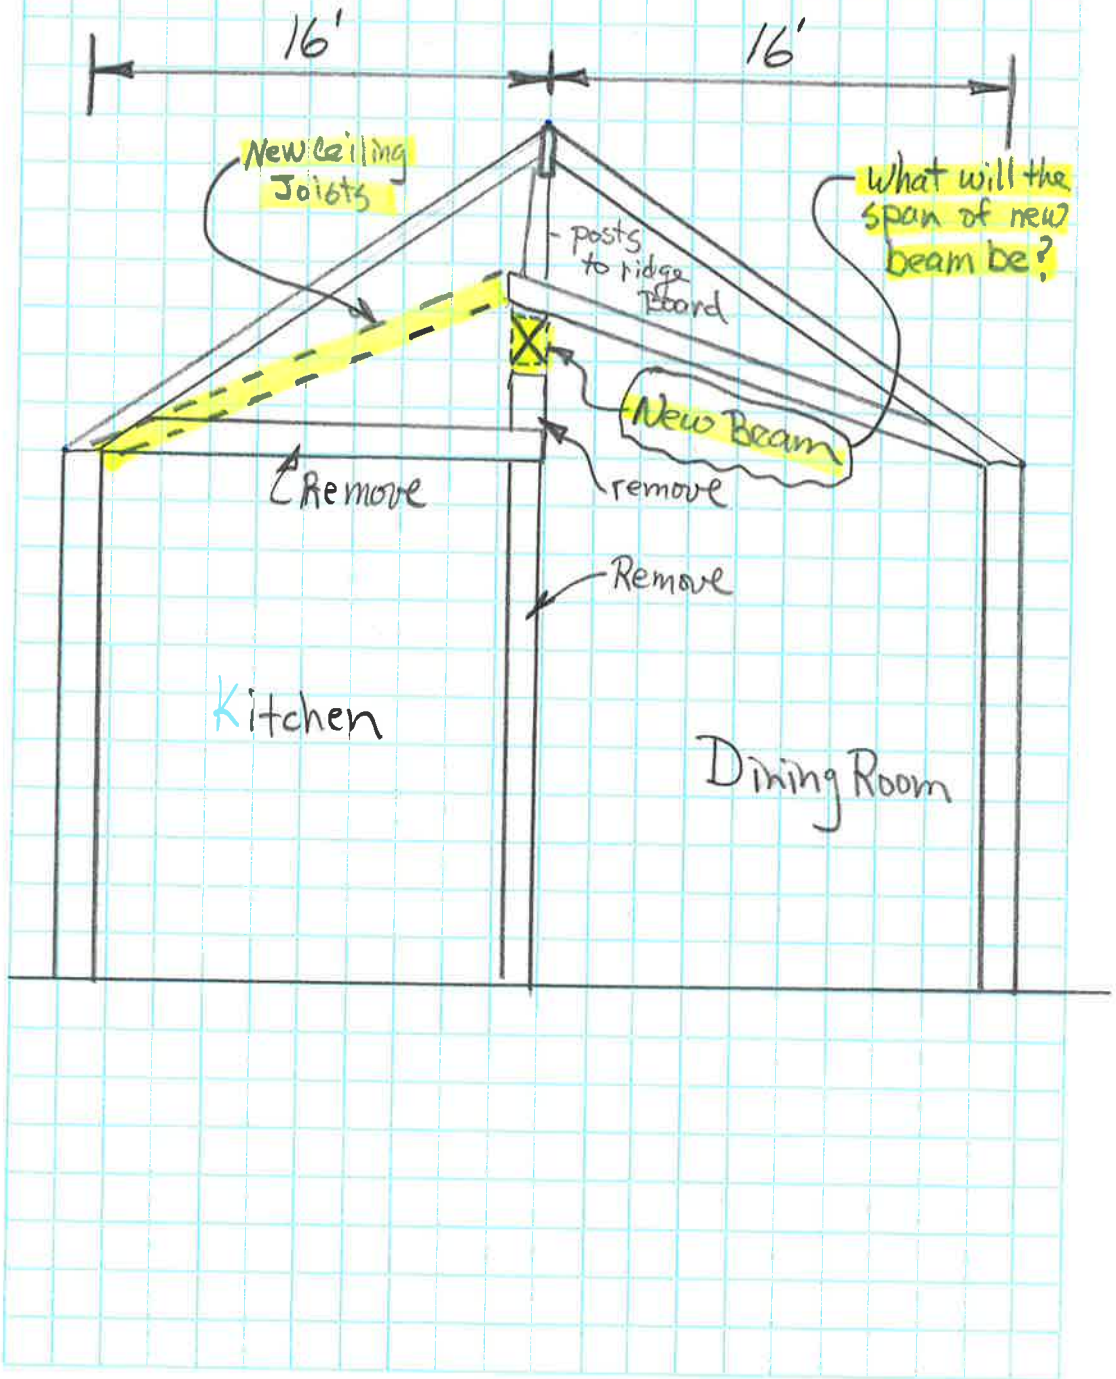 16'
16'
New Ceiling
Joists
What will the
span of new
beam be?
- posts
to ridge
Board
New Beam
Remove
remove
Remove
Kitchen
Dining Room